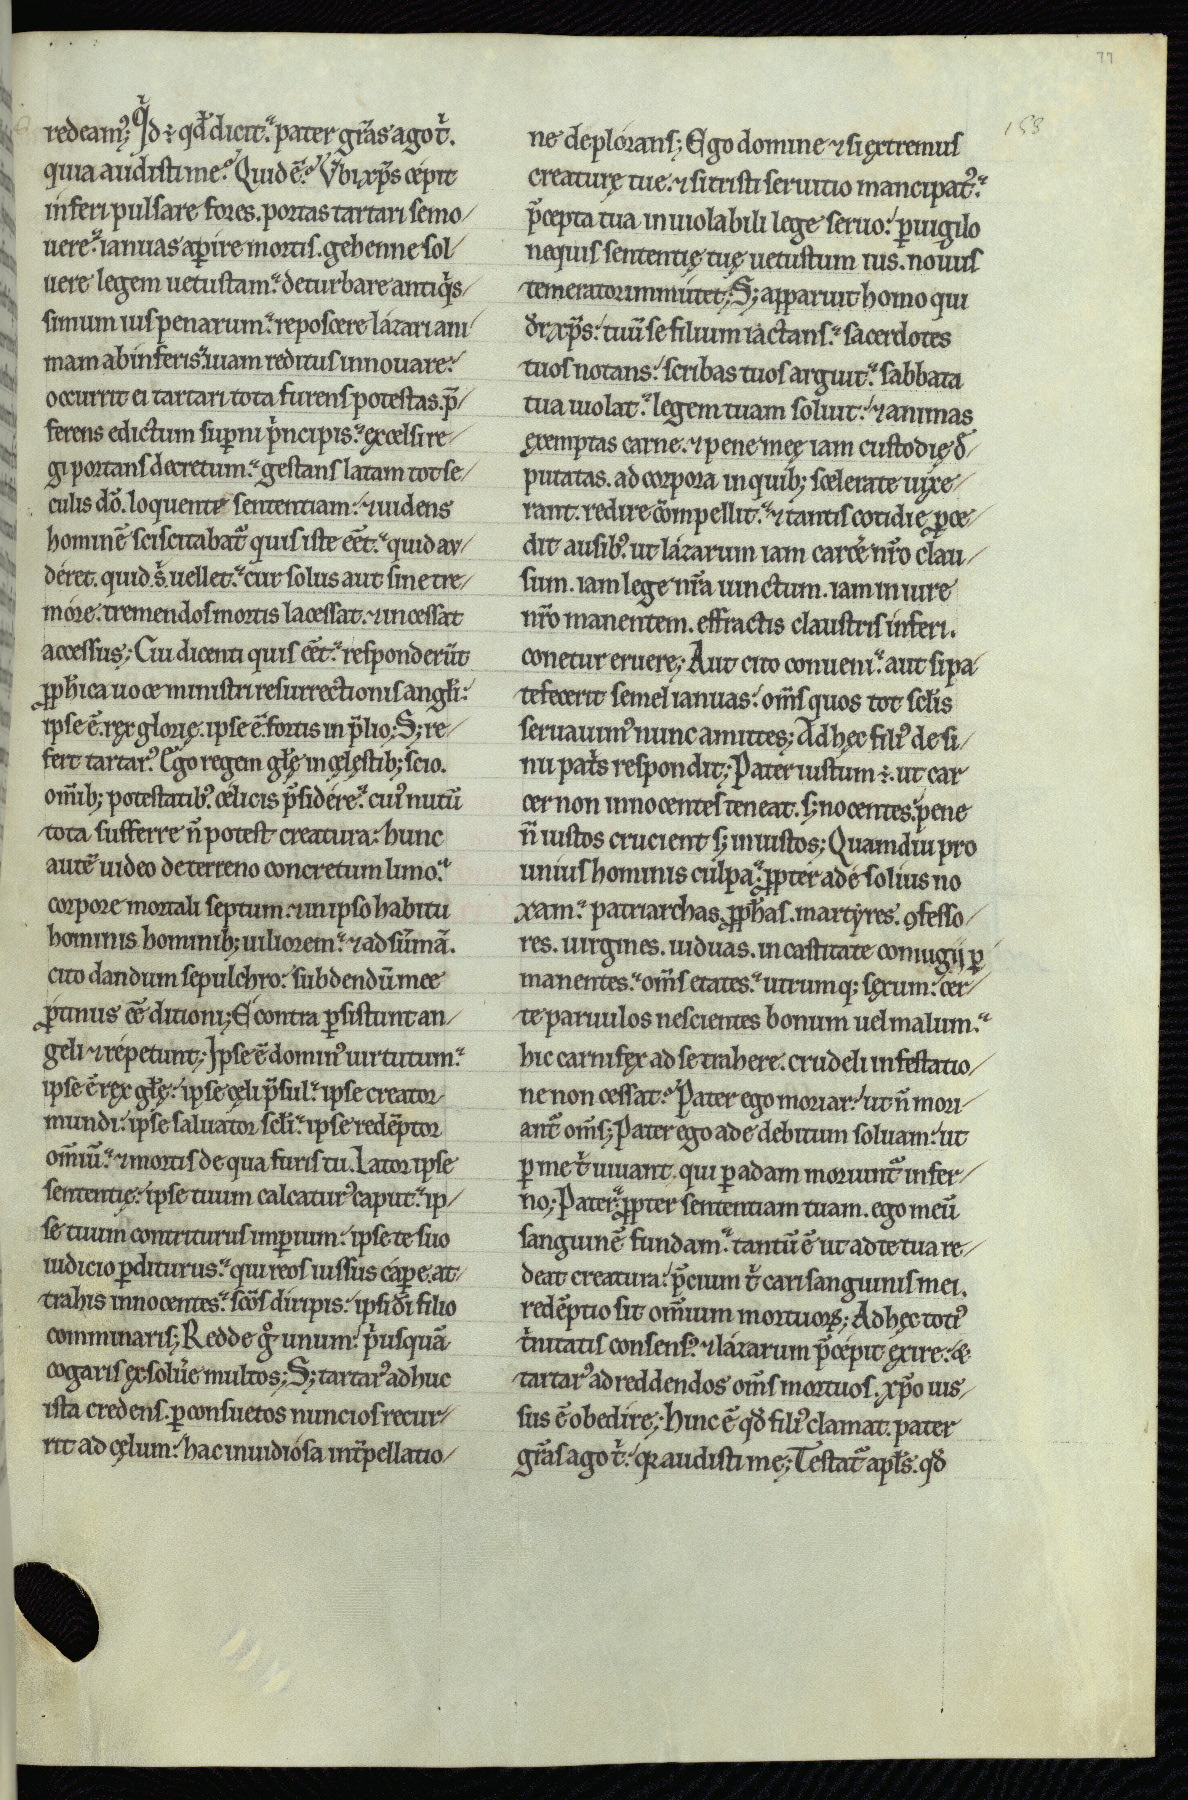 77
158
redeam᷒; Qͥd ÷ qd̄ dicit. pater gr̄as ago tͥ.
quia audisti me? Quid ē? Vbi xp̄s cepit
inferi pulsare fores. portas tartari semo-
uere. ianuas aꝑire mortis. gehenne sol-
uere legem uetustam. deturbare antiqͥs-
simum ius penarum. reposcere lazari ani
mam ab inferis. uiam reditus innouare.
occurrit ei tartari tota furens potestas. p̄-
ferens edictum suꝑni pͥncipis. excelsi re-
gi portans decretum. gestans latam tot se-
culis dō. loquente sententiam. ⁊ uidens
hominē sciscitabat᷑ quis iste eēt. quid au-
deret. quid s̄. uellet. cur solus aut sine tre-
more. tremendos mortis lacessat. ⁊ incessat
accessus; Cui dicenti quis eēt. responderūt
ꝓph̄ica uoce ministri resurrectionis angl̄i.
ipse ē. rex glorię. ipse ē fortis in p̄lio; S; re-
fert tartar᷒. Ego regem gl̄ę in cęlestib; scio.
om̄ib; potestatib᷒ celicis p̄sidere. cui᷒ nutū
tota sufferre n̄ potest creatura. hunc
autē uideo de terreno concretum limo.
corpore mortali septum. ⁊ in ipso habitu
hominis hominib; uiliorem. ⁊ ad sūmā.
cito dandum sepulchro. subdendū mee
ꝓtinus eē ditioni; E contra ꝑsistunt an-
geli ⁊ repetunt; Ipse ē domin᷒ uirtutum.
ipse ē rex gl̄ę. ipse cęli p̄sul. ipse creator
mundi. ipse saluator scl̄i. ipse redēptor
om̄iū. ⁊ mortis de qua furis tu. Lator ipse
sententię. ipse tuum calcatur᷒ caput. ip-
se tuum contriturus imꝑium. ipse te suo
iudicio ꝑditurus. qui reos iussus caꝑe. at-
trahis innocentes. sc̄os diripis. ipsi dī filio
comminaris; Redde gͦ unum. pͥusquā
cogaris exsolu̾e multos; S; tartar᷒ adhuc
ista credens. ꝑ consuetos nuncios recur-
rit ad cęlum. hac inuidiosa int̾pellatio-
ne deplorans; Ego domine ⁊ si extremus
creaturę tue. ⁊ si tristi seruitio mancipat᷒.
p̄cepta tua inuiolabili lege seruo. ꝑuigilo
nequis sententię tuę uetustum ius. nouus
temerator immutet; S; apparuit homo qui
dr̄ xp̄s. tuū se filium iactans. sacerdotes
tuos notans. scribas tuos arguit. sabbata
tua uiolat. legem tuam soluit. ⁊ animas
exemptas carne. ⁊ pene mee iam custodię d̄-
putatas. ad corpora in quib; scelerate uixe-
rant. redire cōmpellit. ⁊ tantis cotidie ꝓce-
dit ausib᷒. ut lazarum iam carcē nr̄o clau-
sum. iam lege nr̄a uinctum. iam in iure
nr̄o manentem. effractis claustris inferi.
conetur eruere; Aut cito conueni. aut si pa-
tefecerit semel ianuas. om̄s quos tot scl̄is
seruauim᷒ nunc amittes; Ad hęc fili᷒ de si-
nu patͥs respondit; Pater iustum ÷. ut car
cer non innocentes teneat. s; nocentes. pene
n̄ iustos crucient s; iniustos; Quamdiu pro
unius hominis culpa. ꝓpter ade solius no
xam. patriarchas. ꝓph̄as. martyres. ꝯfesso-
res. uirgines. uiduas. in castitate coniugij ꝑ-
manentes. om̄s etates. utrumq; sexum. cer-
te paruulos nescientes bonum uel malum.
hic carnifex ad se trahere. crudeli infestatio-
ne non cessat? Pater ego moriar. ut n̄ mori
ant᷑ om̄s; Pater ego ade debitum soluam. ut
ꝑ me tͥ uiuant. qui ꝑ adam moriunt᷑ infer-
no; Pater. ꝓpter sententiam tuam. ego meū
sanguinē fundam. tantū ē ut ad te tua re-
deat creatura. p̄cium tͥ cari sanguinis mei.
redēptio sit om̄ium mortuoꝝ; Ad hęc toti᷒
tͥnitatis consens᷒. ⁊ lazarum p̄cepit exire. &
tartar᷒ ad reddendos om̄s mortuos. xp̄o ius-
sus ē obedire; Hinc ē qd̄ fili᷒ clamat. pater
gr̄as ago tͥ. qꝛ audisti me; Testat᷑ apl̄s. qd̄